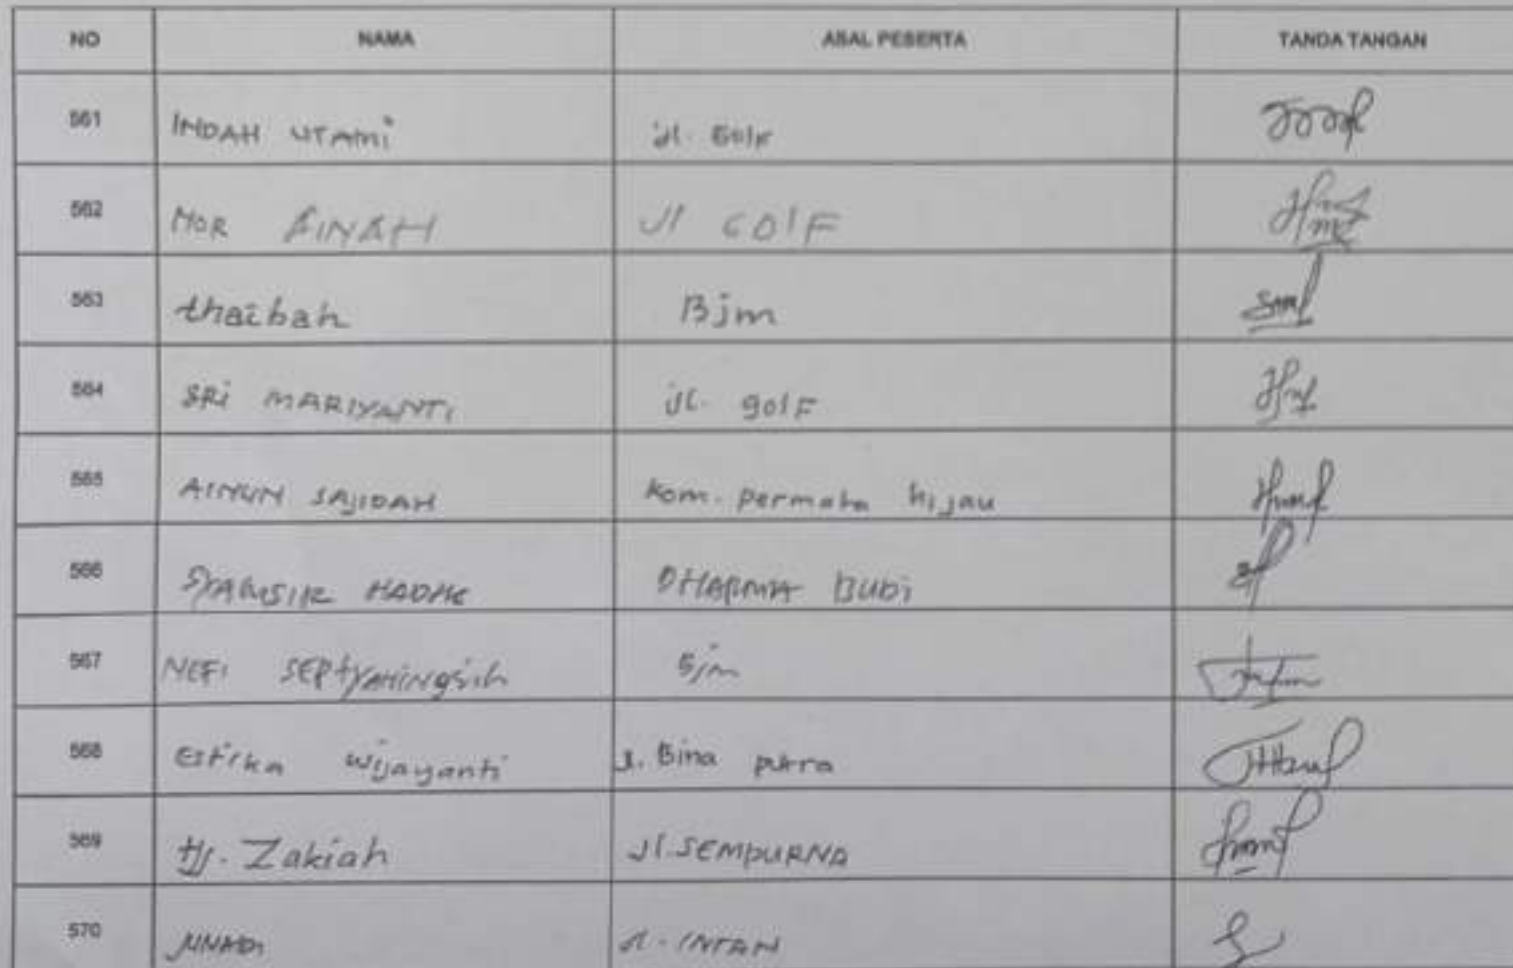 NO NAMA ASAL PESERTA TANDA TANGAN
561 INDAH UTAMi Jl. Golf
562 NOR AINAH Jl GOlF
563 thaibah Bjm
564 SRi MARIYANTi Jl. golF
565 AINUN SAJIDAH Kom. permata hijau
566 DHARMA BUDi
567 NEFi SEPtyANiNgsih Bjm
568 Estika wijayanti Jl. Bina putra
569 Hj. Zakiah Jl.SEMPURNA
570 JUNADi Jl. INTAN